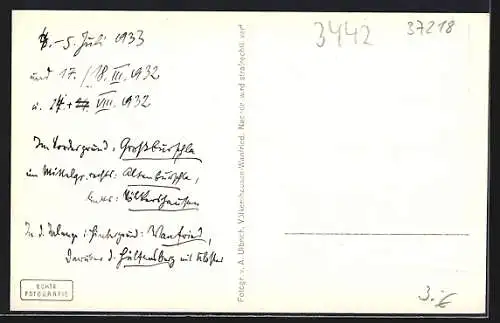 4.-5. Juli 1933
und 17./18. III. 1932
u. 14.+ VIII. 1932
Im Vordergrund: Großburschla
im Mittelgr. rechts: Altenburschla,
links: Völkershausen
In d. Talenge: Hintergrund: Wanfried,
darüber d. Hülfensberg mit Kloster
ECHTE
FOTOGRAFIE
Fotogr. v. A. Ulbrich, Völkershausen-Wanfried. Nachdr. wird strafrechtl. verf.
3442
37218
3.-€